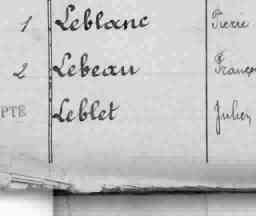 1 Leblanc Pierre
2 Lebeau Françoi
PTE Leblet Julien